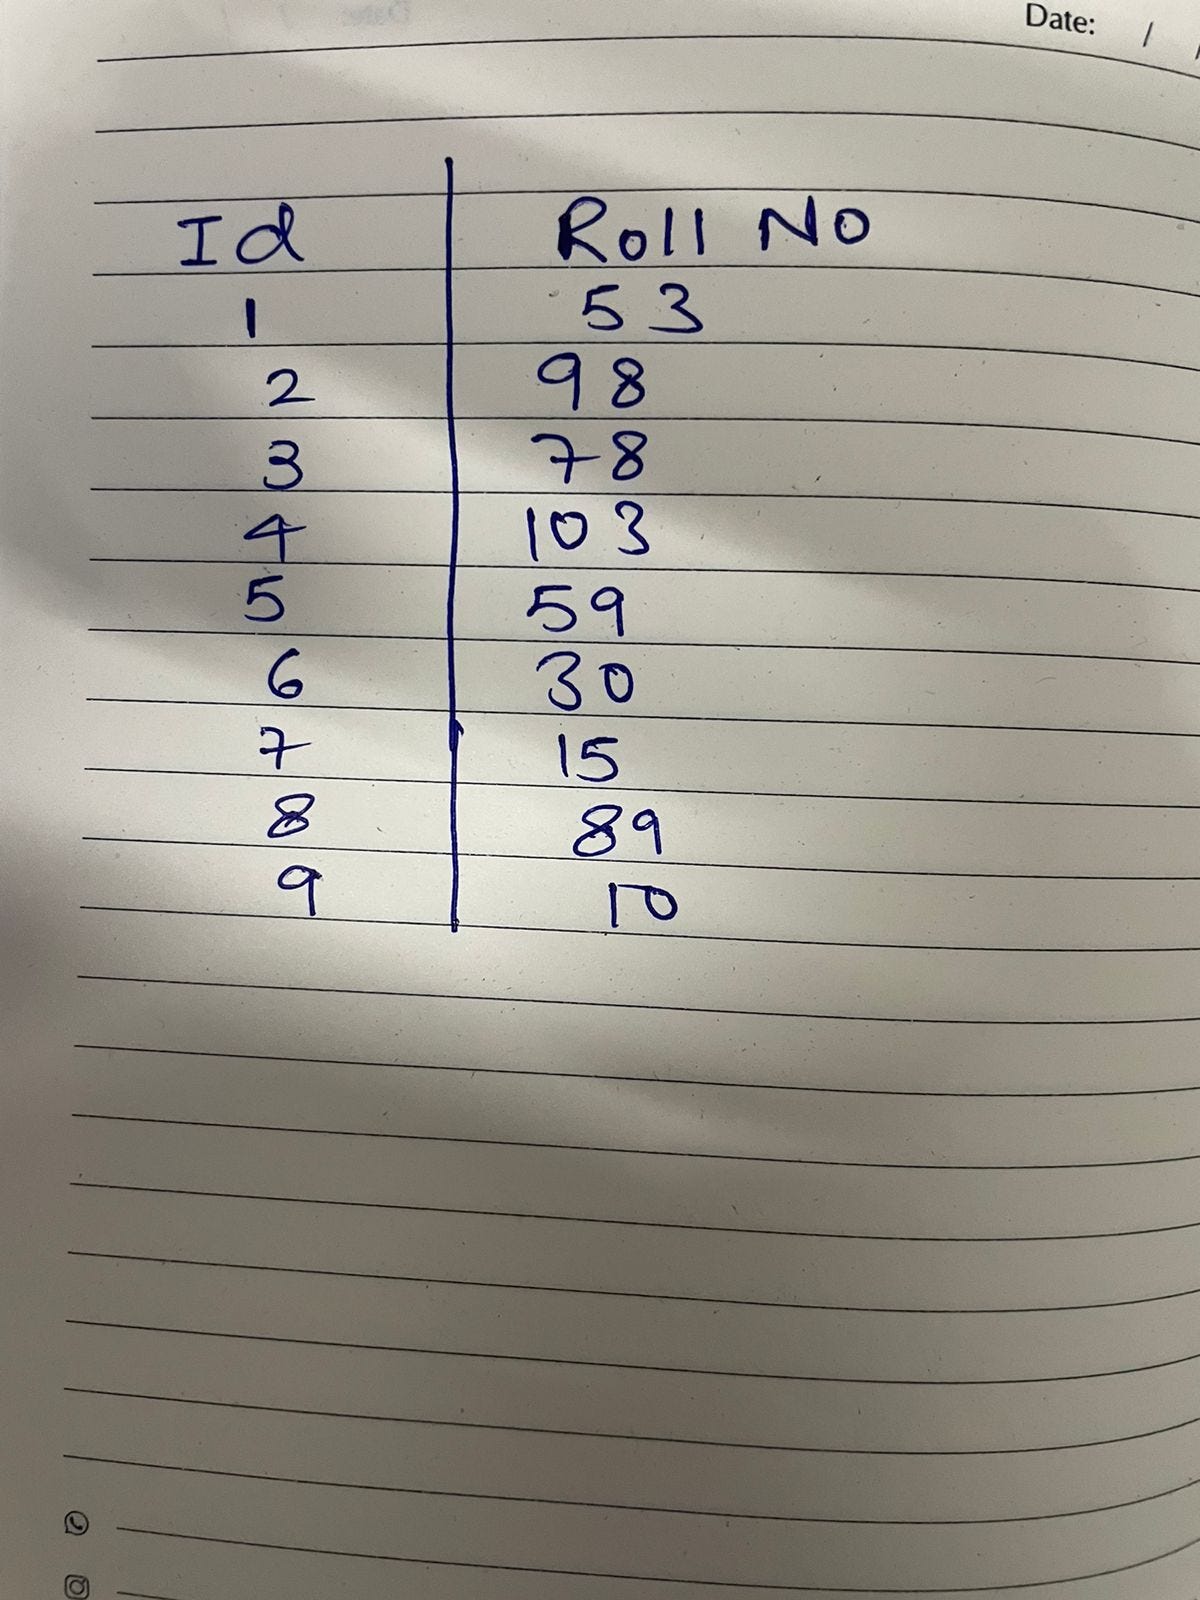 Date: / /
Id Roll No
1 53
2 98
3 78
4 103
5 59
6 30
7 15
8 89
9 10